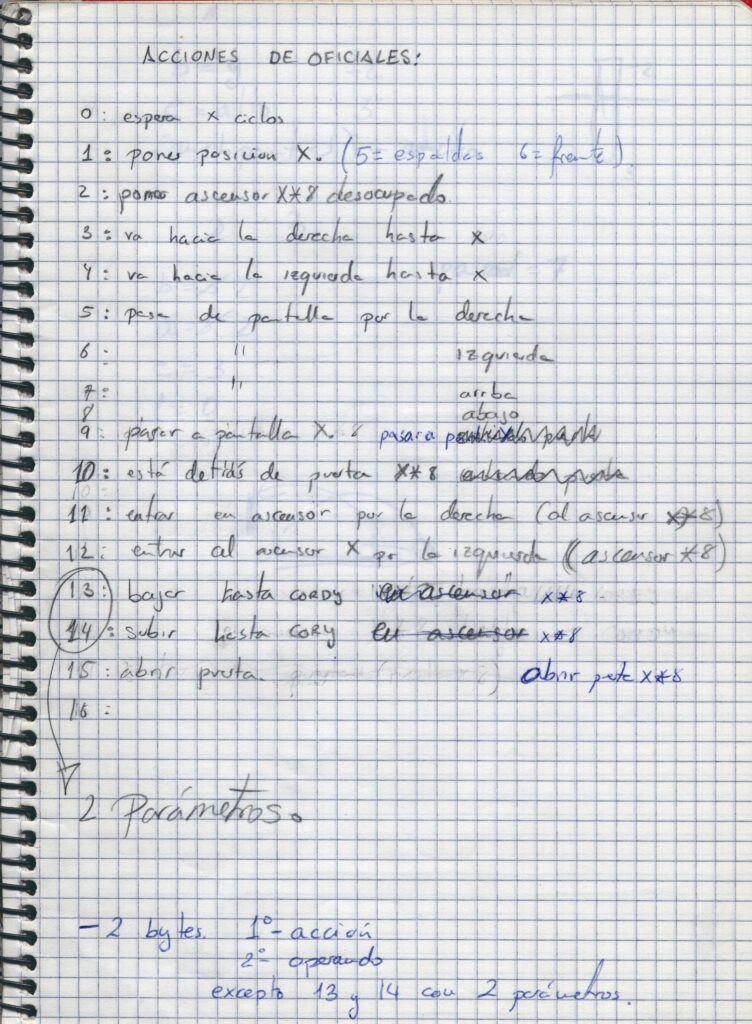 ACCIONES DE OFICIALES:
0: espera x ciclos
1: poner posicion X. (5= espaldas 6= frente).
2: poner ascensor X*8 desocupado
3: va hacia la derecha hasta x
4: va hacia la izquierda hasta x
5: pasa de pantalla por la derecha
6: " izquierda
7: " arriba
8 abajo
9: pasar a pantalla X. pasar a
10: está detrás de puerta X*8
11: entrar en ascensor por la derecha (al ascensor x*8)
12: entrar al ascensor X por la izquierda (ascensor *8)
13: bajar hasta CORDY en ascensor x*8
14: subir hasta CORY en ascensor x*8
15: abrir puerta. abrir X*8
16:
2 Parámetros.
- 2 bytes. 1º- acción
2º- operando
excepto 13 y 14 con 2 parámetros.